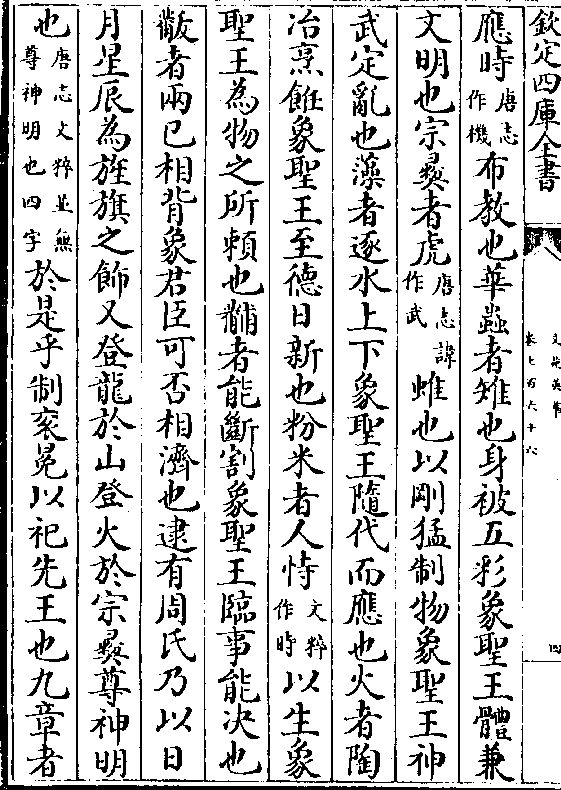 欽定四庫全書
文苑英華
卷七百六十六
四
應時唐志作機布教也華蟲者雉也身被五彩象聖王體兼
文明也宗彛者虎唐志諱作武蜼也以剛猛制物象聖王神
武定亂也藻者逐水上下象聖王隨代而應也火者陶
冶烹飪象聖王至德日新也粉米者人恃文粹作時以生象
聖王為物之所賴也黼者能斷割象聖王臨事能决也
黻者兩已相背象君臣可否相濟也逮有周氏乃以日
月星辰為旌旗之飾又登龍於山登火於宗彛尊神明
也唐志文粹並無尊神明也四字於是乎制衮冕以祀先王也九章者